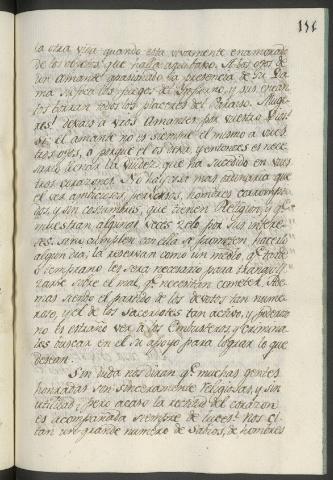 la otra vida quando esta vivamente enamorado
de los objetos qe halla aqui baxo. A los ojos de
un amante apasionado la presencia de su Da-
ma sufoca los fuegos del Ynfierno, y sus encan-
tos borran todos los placeres del Paraiso. Muge-
res! dexais a vros amantes por vuestro Dios
si: el amante no es siempre el mismo a vues-
tros ojos, o porque el os dexa, y entonces es nece-
sario llenar la viudez que ha sucedido en vues-
tros corazones. No hay cosa mas ordinaria que
el ver ambiciosos, perversos, hombres corrompi-
dos, y sin costumbres, que tienen Religion, y qe
muestran algunas veces zelo por sus intere-
ses. Sino cumplen con ella se prometen hacerlo
algun dia; la reservan como un medio, qe tarde
o temprano les sera necesario para tranquili-
zarse sobre el mal, qe necesitan cometer. Ade-
mas siendo el partido de los devotos tan nume-
roso, y el de los sacerdotes tan activo, y poderoso
no es estraño ver a los Embusteros y crimina-
les buscar en el su apoyo para lograr lo que
desean.
Sin duda nos diran qe muchas gentes
honradas son sinceramente religiosas, y sin
utilidad; pero acaso la rectitud del corazon
es acompañada siempre de luces? Nos ci-
tan un grande numero de sabios, de hombres